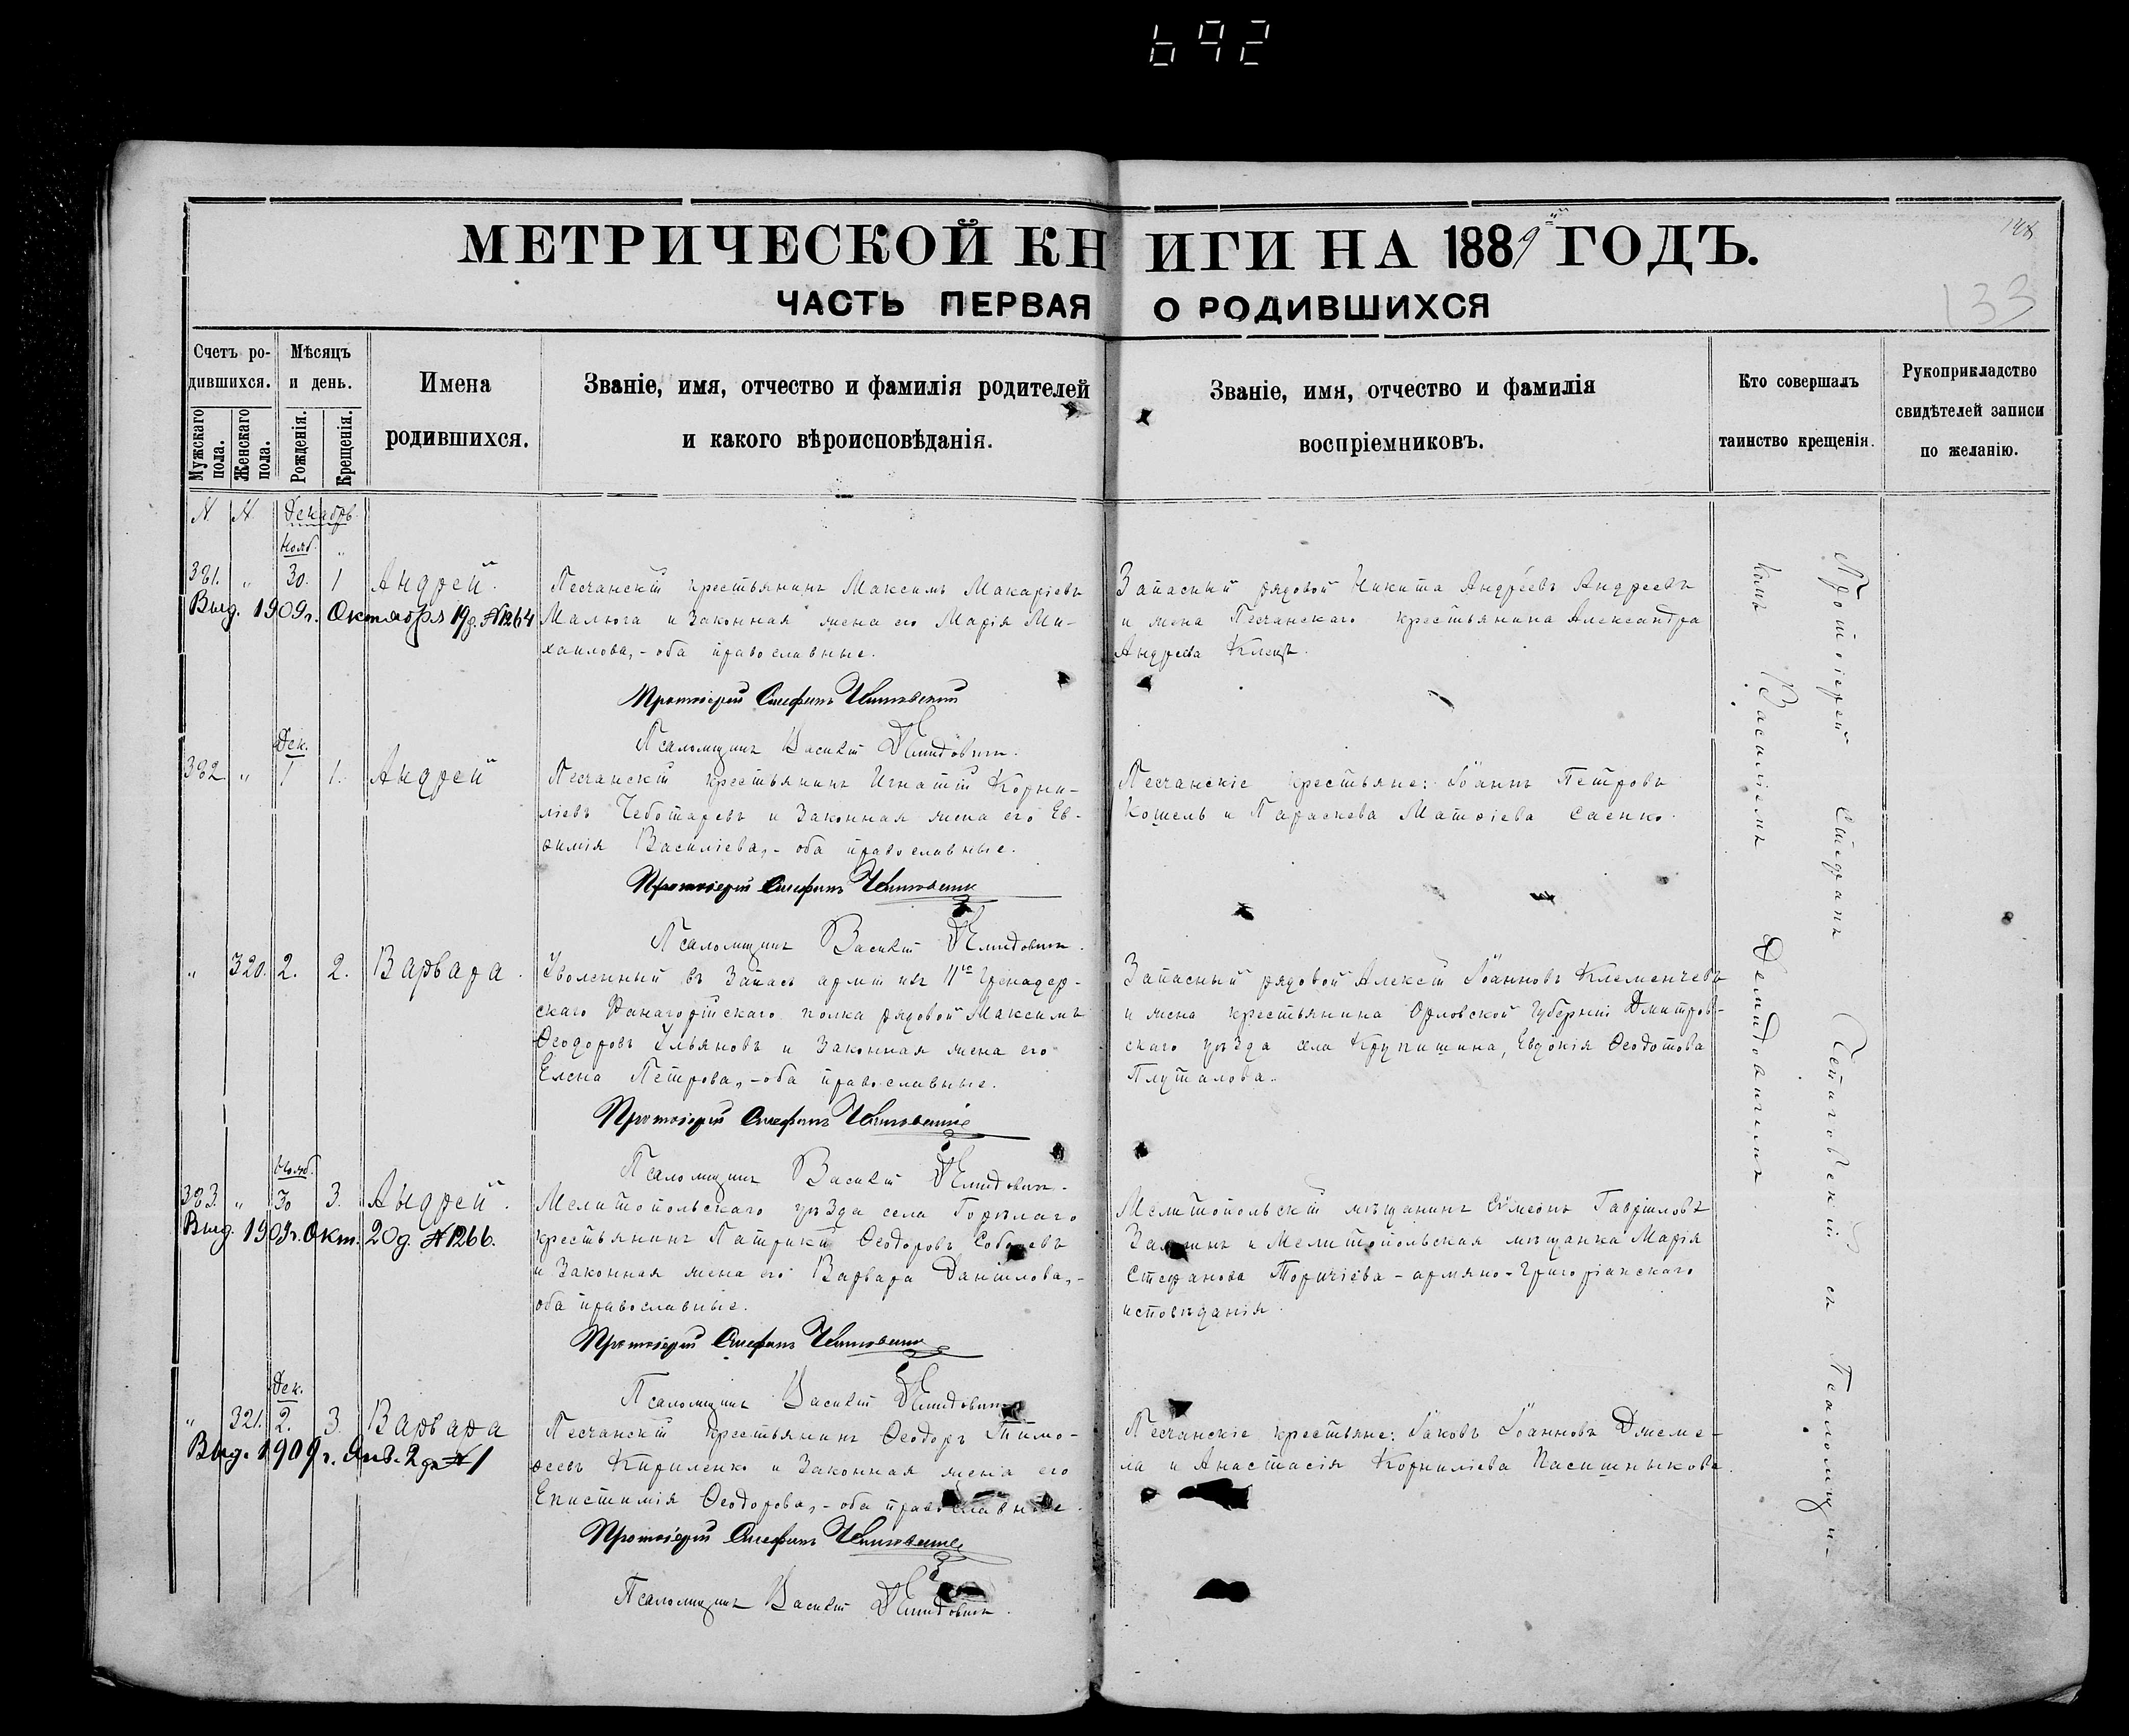 692
МЕТРИЧЕСКОЙ КНИГИ НА 1889й ГОДЪ.
133
ЧАСТЬ ПЕРВАЯ О РОДИВШИХСЯ
Счетъ родившихся.
Мужскаго пола.
Женскаго пола.
Мѣсяцъ и день.
Рожденія.
Крещенія.
Имена родившихся.
Званіе, имя, отчество и фамилія родителей
и какого вѣроисповѣданія.
Званіе, имя, отчество и фамилія
воспріемниковъ.
Кто совершалъ
таинство крещенія.
Рукоприкладство
свидѣтелей записи
по желанію.
N. N. Декабрь
Нояб. "
381. " 30. 1 Андрей.
Выд. 1909г. Октября 19д. №1264
Песчанскій крестьянинъ Максимъ Макаріевъ
Малюга и законная жена его Марія Ми-
хаилова, - оба православные.
Протоіерей Стефанъ
Псаломщикъ Василій Демидовичъ.
Запасный рядовой Никита Андреевъ Андреевъ
и жена Песчанскаго крестьянина Александра
Андреева
Дек.
382. " 1 1. Андрей
Песчанскій крестьянинъ Игнатій Корни-
ліевъ Чеботаревъ и законная жена его Ев-
ѳимія Василіева, - оба православные.
Протоіерей Стефанъ
Псаломщикъ Василій Демидовичъ.
Песчанскіе крестьяне: Іоаннъ Петровъ
Кошель и Параскева Матѳіева Саенко.
" 320. 2. 2. Варвара.
Уволенный въ запасъ арміи изъ 11го Гренадер-
скаго Фанагорійскаго полка рядовой Максимъ
Ѳеодоровъ Ульяновъ и законная жена его
Елена Петрова, - оба православные.
Протоіерей Стефанъ
Псаломщикъ Василій Демидовичъ.
Запасный рядовой Алексій Іоанновъ Клеменчевъ
и жена крестьянина Орловской губерніи Дмитров-
скаго уѣзда села Крупишина, Евдокія Ѳеодотова
Плуталова.
Нояб.
383. " 30 3. Андрей.
Выд. 1909г. Окт. 20д. №1266.
Мелитопольскаго уѣзда села Горѣлаго
крестьянинъ Патрикій Ѳеодоровъ
и законная жена его Варвара Даніилова, -
оба православные.
Протоіерей Стефанъ
Псаломщикъ Василій Демидовичъ
Мелитопольскій мѣщанинъ Сѵмеонъ Гавріиловъ
и Мелитопольская мѣщанка Марія
Стефанова - армяно-григоріанскаго
исповѣданія.
Дек.
" 321. 2. 3. Варвара
Выд. 1909г. Янв. 2 дн №1
Песчанскій крестьянинъ Ѳеодоръ Тимо-
ѳеевъ Кириленко и законная жена его
Епистимія Ѳеодорова, - оба православные.
Протоіерей Стефанъ
Псаломщикъ Василій Демидовичъ.
Песчанскіе крестьяне: Іаковъ Іоанновъ Джеме-
ла и Анастасія Корниліева Пасишныкова.
Протоіерей Стефанъ съ Псаломщи-
комъ Василіемъ Демидовичемъ.